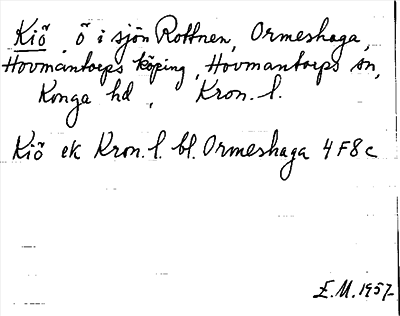 Kiö, ö i sjön Rottnen, Ormeshaga,
Hovmantorps köping, Hovmantorps sn,
Konga hd, Kron. l.
Kiö ek Kron. l. bl. Ormeshaga 4 F 8 c
E.M. 1957